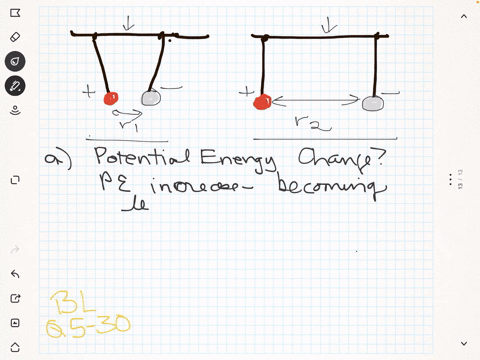 + −
r1
+ −
r2
a) Potential Energy Change?
PE increase becoming
le
BL
Q5-30
13 / 13